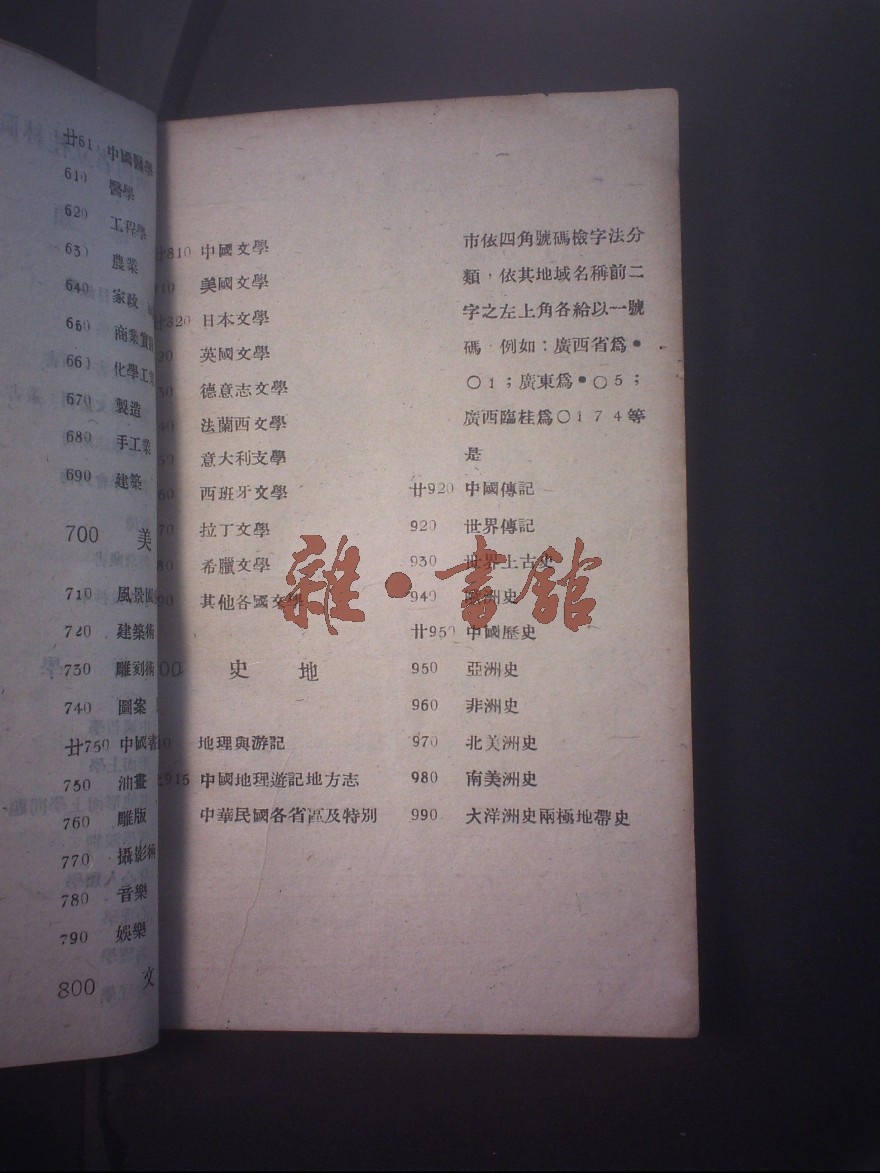 廿61 中國醫學
610 醫學
620 工程學
630 農業
640 家政
650 商業實
660 化學工業
670 製造
680 手工業
690 建築
700 美
710 風景園
720 建築術
730 雕刻術
740 圖案
廿750 中國書
750 油畫
760 雕版
770 攝影術
780 音樂
790 娛樂
800 文
廿810 中國文學
10 美國文學
廿820 日本文學
20 英國文學
30 德意志文學
40 法蘭西文學
50 意大利文學
60 西班牙文學
70 拉丁文學
80 希臘文學
90 其他各國文學
00 史 地
0 地理與游記
915 中國地理遊記地方志
中華民國各省區及特別
市依四角號碼檢字法分
類，依其地域名稱前二
字之左上角各給以一號
碼．例如：廣西省爲●
〇1；廣東爲●〇5；
廣西臨桂爲〇174等
是
廿920 中國傳記
920 世界傳記
930 世界上古史
940 歐洲史
廿950 中國歷史
950 亞洲史
960 非洲史
970 北美洲史
980 南美洲史
990 大洋洲史兩極地帶史
雜·書館